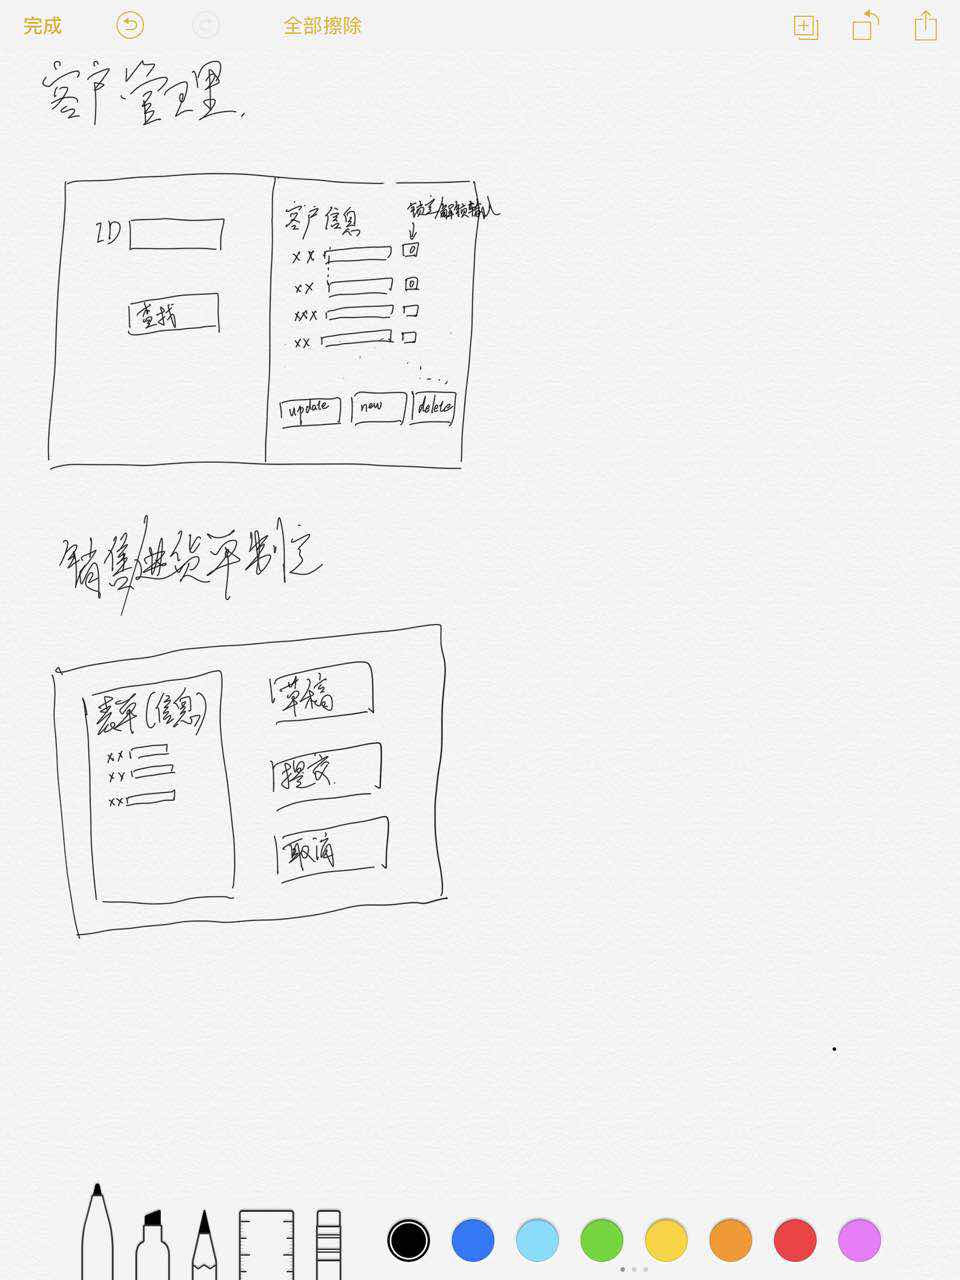 完成
全部擦除
客户管理.
ID
查找
客户信息
锁定/解锁输入
xx
xx
xxx
xx
update
new
delete
销售/进货单制定
表单(信息)
xx
xx
xx
草稿
提交
取消